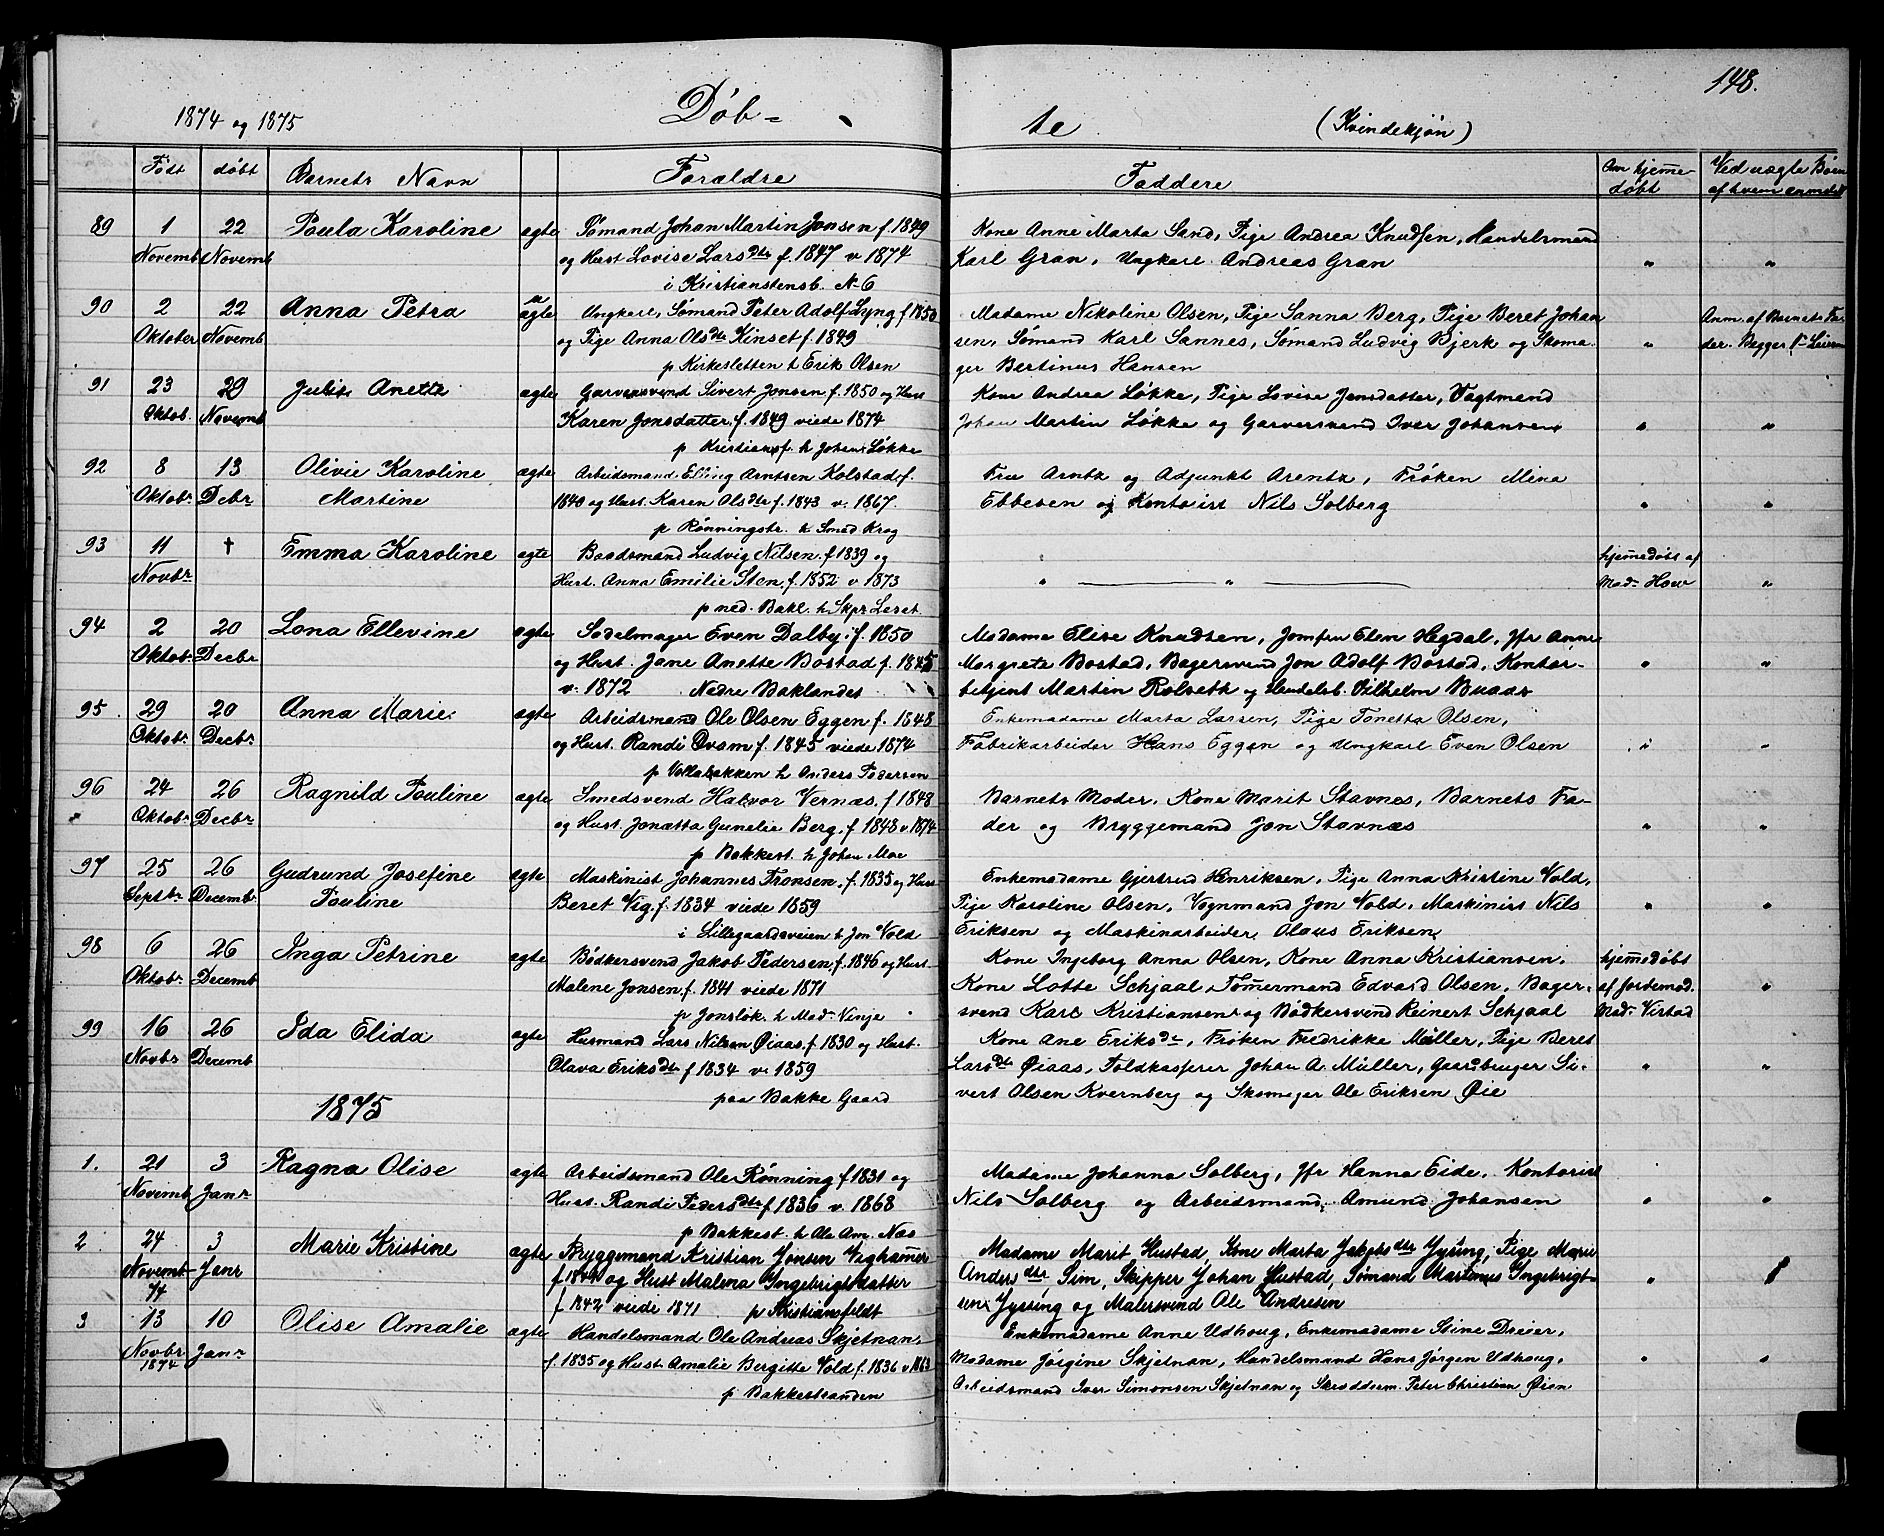 148.
1874 og 1875 Döb- te (Kvindekjön)
Født døbt Barnets Navn Forældre Faddere Om hjemmedøbt Ved uægte Børn af hvem anmeldt
89 1 Novemb 22 Novemb Paula Karoline ægte Sømand Johan Martin Jonsen f. 1849
og Hust Lovise Larsdtr f. 1847 v 1874
i Kristianstensb. N 6
Kone Anne Marta Sand, Pige Andrea Knudsen, Handelsmand
Karl Gran, Ungkarl Andreas Gran " "
90 2 Oktober 22 Novemb Anna Petra uægte Ungkarl, Sømand Peter Adolf Lyng f 1850
og Pige Anna Olsdtr Kinset f. 1849
p Kirkesletten h Erik Olsen
Madame Nikoline Olsen, Pige Sanna Berg, Pige Beret Johan
sen, Sømand Karl Sannes, Sømand Ludvig Bjerk og Skoma-
ger Bertinus Hansen
" Anm. af Barnets Fa-
der.
91 23 Oktob. 29 Novemb Julie Anette ægte Garversvend Sivert Jonsen f. 1850 og Hust
Karen Jonsdatter f. 1849 viede 1874
p Kristiansf. h Johan Løkke
Kone Andrea Løkke, Pige Lovise Jensdatter, Vagtmand
Johan Martin Løkke og Garversvend Iver Johansen " "
92 8 Oktobr 13 Debr Olivie Karoline
Martine ægte Arbeidsmand Elling Arntsen Kolstad f.
1840 og Hust. Karen Olsdtr f. 1843 v. 1867.
p Rønningstr. h Smed Krog
Fru Arntz og Adjunkt Arentz, Frøken Mina
Ebbesen og Kontorist Nils Solberg " "
93 11 Novbr † Emma Karoline ægte Baadsmand Ludvig Nilsen f. 1839 og
Hust. Anna Emilie Sten f. 1852 v 1873
p ned. Bakl. h Skpr Leset
" " hjemmedøbt af
Mad. "
94 2 Oktob. 20 Decbr Lona Ellevine ægte Sadelmager Even Dalby f. 1850
og Hust. Jane Anette Bostad f. 1845
v. 1872 Nedre Baklandet
Madame Elise Knudsen, Jomfru Elen Hegdal, Jfr Anne
Margrete Bostad, Bagersvend Jon Adolf Bostad, Kontor-
betjent Martin Rolseth og Handelsb. Vilhelm " "
95 29 Oktobr 20 Decbr Anna Marie ægte Arbeidsmand Ole Olsen Eggen f. 1848
og Hust. Randi f. 1845 viede 1874
p Vollabakken h Anders Pedersen
Enkemadame Marta Larsen, Pige Tonetta Olsen,
Fabrikarbeider Hans Eggen og Ungkarl Even Olsen " "
96 24 Oktobr 26 Decbr Ragnild Pauline ægte Smedsvend Halvor Vernæs f. 1848
og Hust. Jonetta Gunelie Berg f. 1848 v. 1874
p Bakkest. h Johan Moe
Barnets Moder, Kone Marit Stavnes, Barnets Fa-
der og Bryggemand Jon Stavnæs " "
97 25 Septbr 26 Decemb Gudrund Josefine
Pauline ægte Maskinist Johannes Tronsen f. 1835 og Hust
Beret Vig f. 1834 viede 1859
i Lillegaardsveien h Jon Vold
Enkemadame Gjertrud Henriksen, Pige Anna Kristine Vold,
Pige Karoline Olsen, Vognmand Jon Vold, Maskinist Nils
Eriksen og Maskinarbeider Olaus Eriksen " "
98 6 Oktobr 26 Decemb Inga Petrine ægte Bødkersvend Jakob Pedersen f. 1846 og Hust
Malene Jonsen f. 1841 viede 1871
p Jonsløk. h Mad. Vinje
Kone Ingeborg Anna Olsen, Kone Anna Kristiansen,
Kone Lotte Schjaal, Tømermand Edvard Olsen, Bager-
svend Karl Kristiansen og Bødkersvend Reinert Schjaal
hjemmedøbt
af Jordemod.
Mad. Virstad "
99 16 Novbr 26 Decemb Ida Elida ægte Husmand Lars Nilsen Øiaas f. 1830 og Hust.
Olava Eriksdtr f 1834 v. 1859
paa Bakke Gaard
Kone Ane Eriksdtr, Frøken Fredrikke Müller, Pige Beret
Larsdtr Øiaas, Toldkasserer Johan A. Müller, Gaardbruger Si-
vert Olsen Kvernberg og Skomager Ole Eriksen Øie " "
1875
1. 21 Novemb 3 Janr Ragna Olise ægte Arbeidsmand Ole Rønning f 1831 og
Hust. Randi Pedersdtr f 1836 v. 1868
p Bakkest. h Ole Am. Næs
Madame Johanna Solberg, Jfr Hanna Eide, Kontorist
Nils Solberg og Arbeidsmand Amund Johansen " "
2 24 Novemb 74 3 Janr Marie Kristine ægte Bryggemand Kristian Jonsen Vighammer
f 1844 og Hust Malena Ingebrigtsdatter
f 1842 viede 1871 p Kristiansfeldt
Madame Marit Hustad, Kone Marta Jakobsdtr Jyssing, Pige Marie
Andersdtr Sim, Skipper Johan Hustad, Sømand Martinus Ingebrigt-
sen Jyssing og Malersvend Ole Andresen "
3 13 Novbr 1874 10 Janr Olise Amalie ægte Handelsmand Ole Andreas Skjetnan
f. 1835 og Hust. Amalie Bergitte Vold f. 1836 v 1863
p Bakkestranden
Enkemadame Anne Udhoug, Enkemadame Stine Dreier,
Madame Jørgine Skjetnan, Handelsmand Hans Jørgen Udhoug,
Arbeidsmand Iver Simonsen Skjetnan og Skrædderm. Peter Christian Øien " "